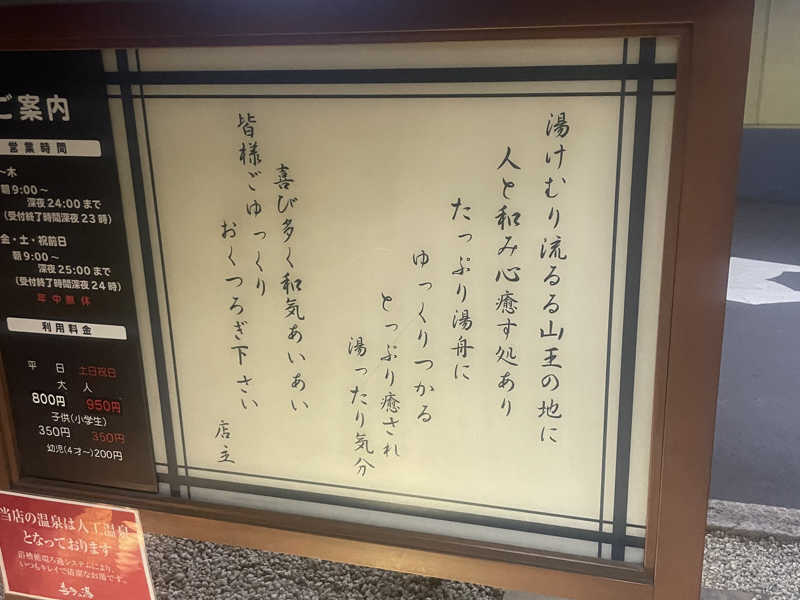 湯けむり流るる山王の地に
人と和み心癒す処あり
たっぷり湯舟に
ゆっくりつかる
とっぷり癒され
湯ったり気分
喜び多く和気あいあい
皆様ごゆっくり
おくつろぎ下さい
店主
ご案内
営業時間
～木
朝9:00～
深夜24:00まで
(受付終了時間深夜23時)
金・土・祝前日
朝9:00～
深夜25:00まで
(受付終了時間深夜24時)
年中無休
利用料金
平日 土日祝日
大人
800円 950円
子供(小学生)
350円 350円
幼児(4才～)200円
当店の温泉は人工温泉
となっております
浴槽循環ろ過システムにより、
いつもキレイで清潔なお湯です。